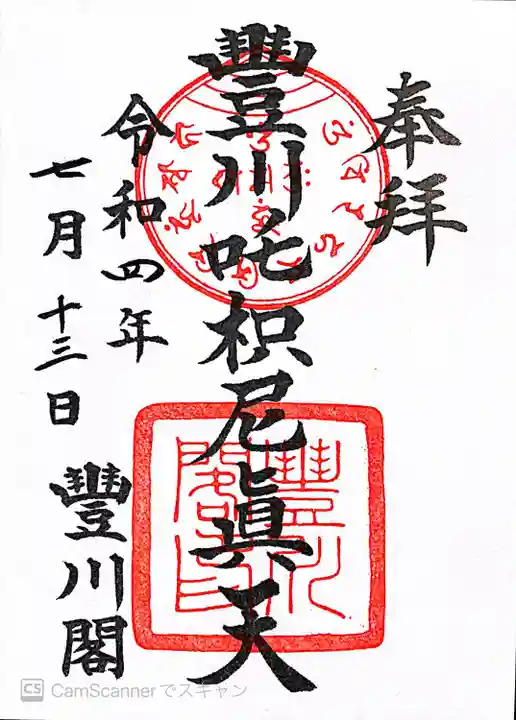 奉拝
豐川吒枳尼眞天
令和四年
七月十三日
豐川閣
豐川閣印
CS CamScannerでスキャン